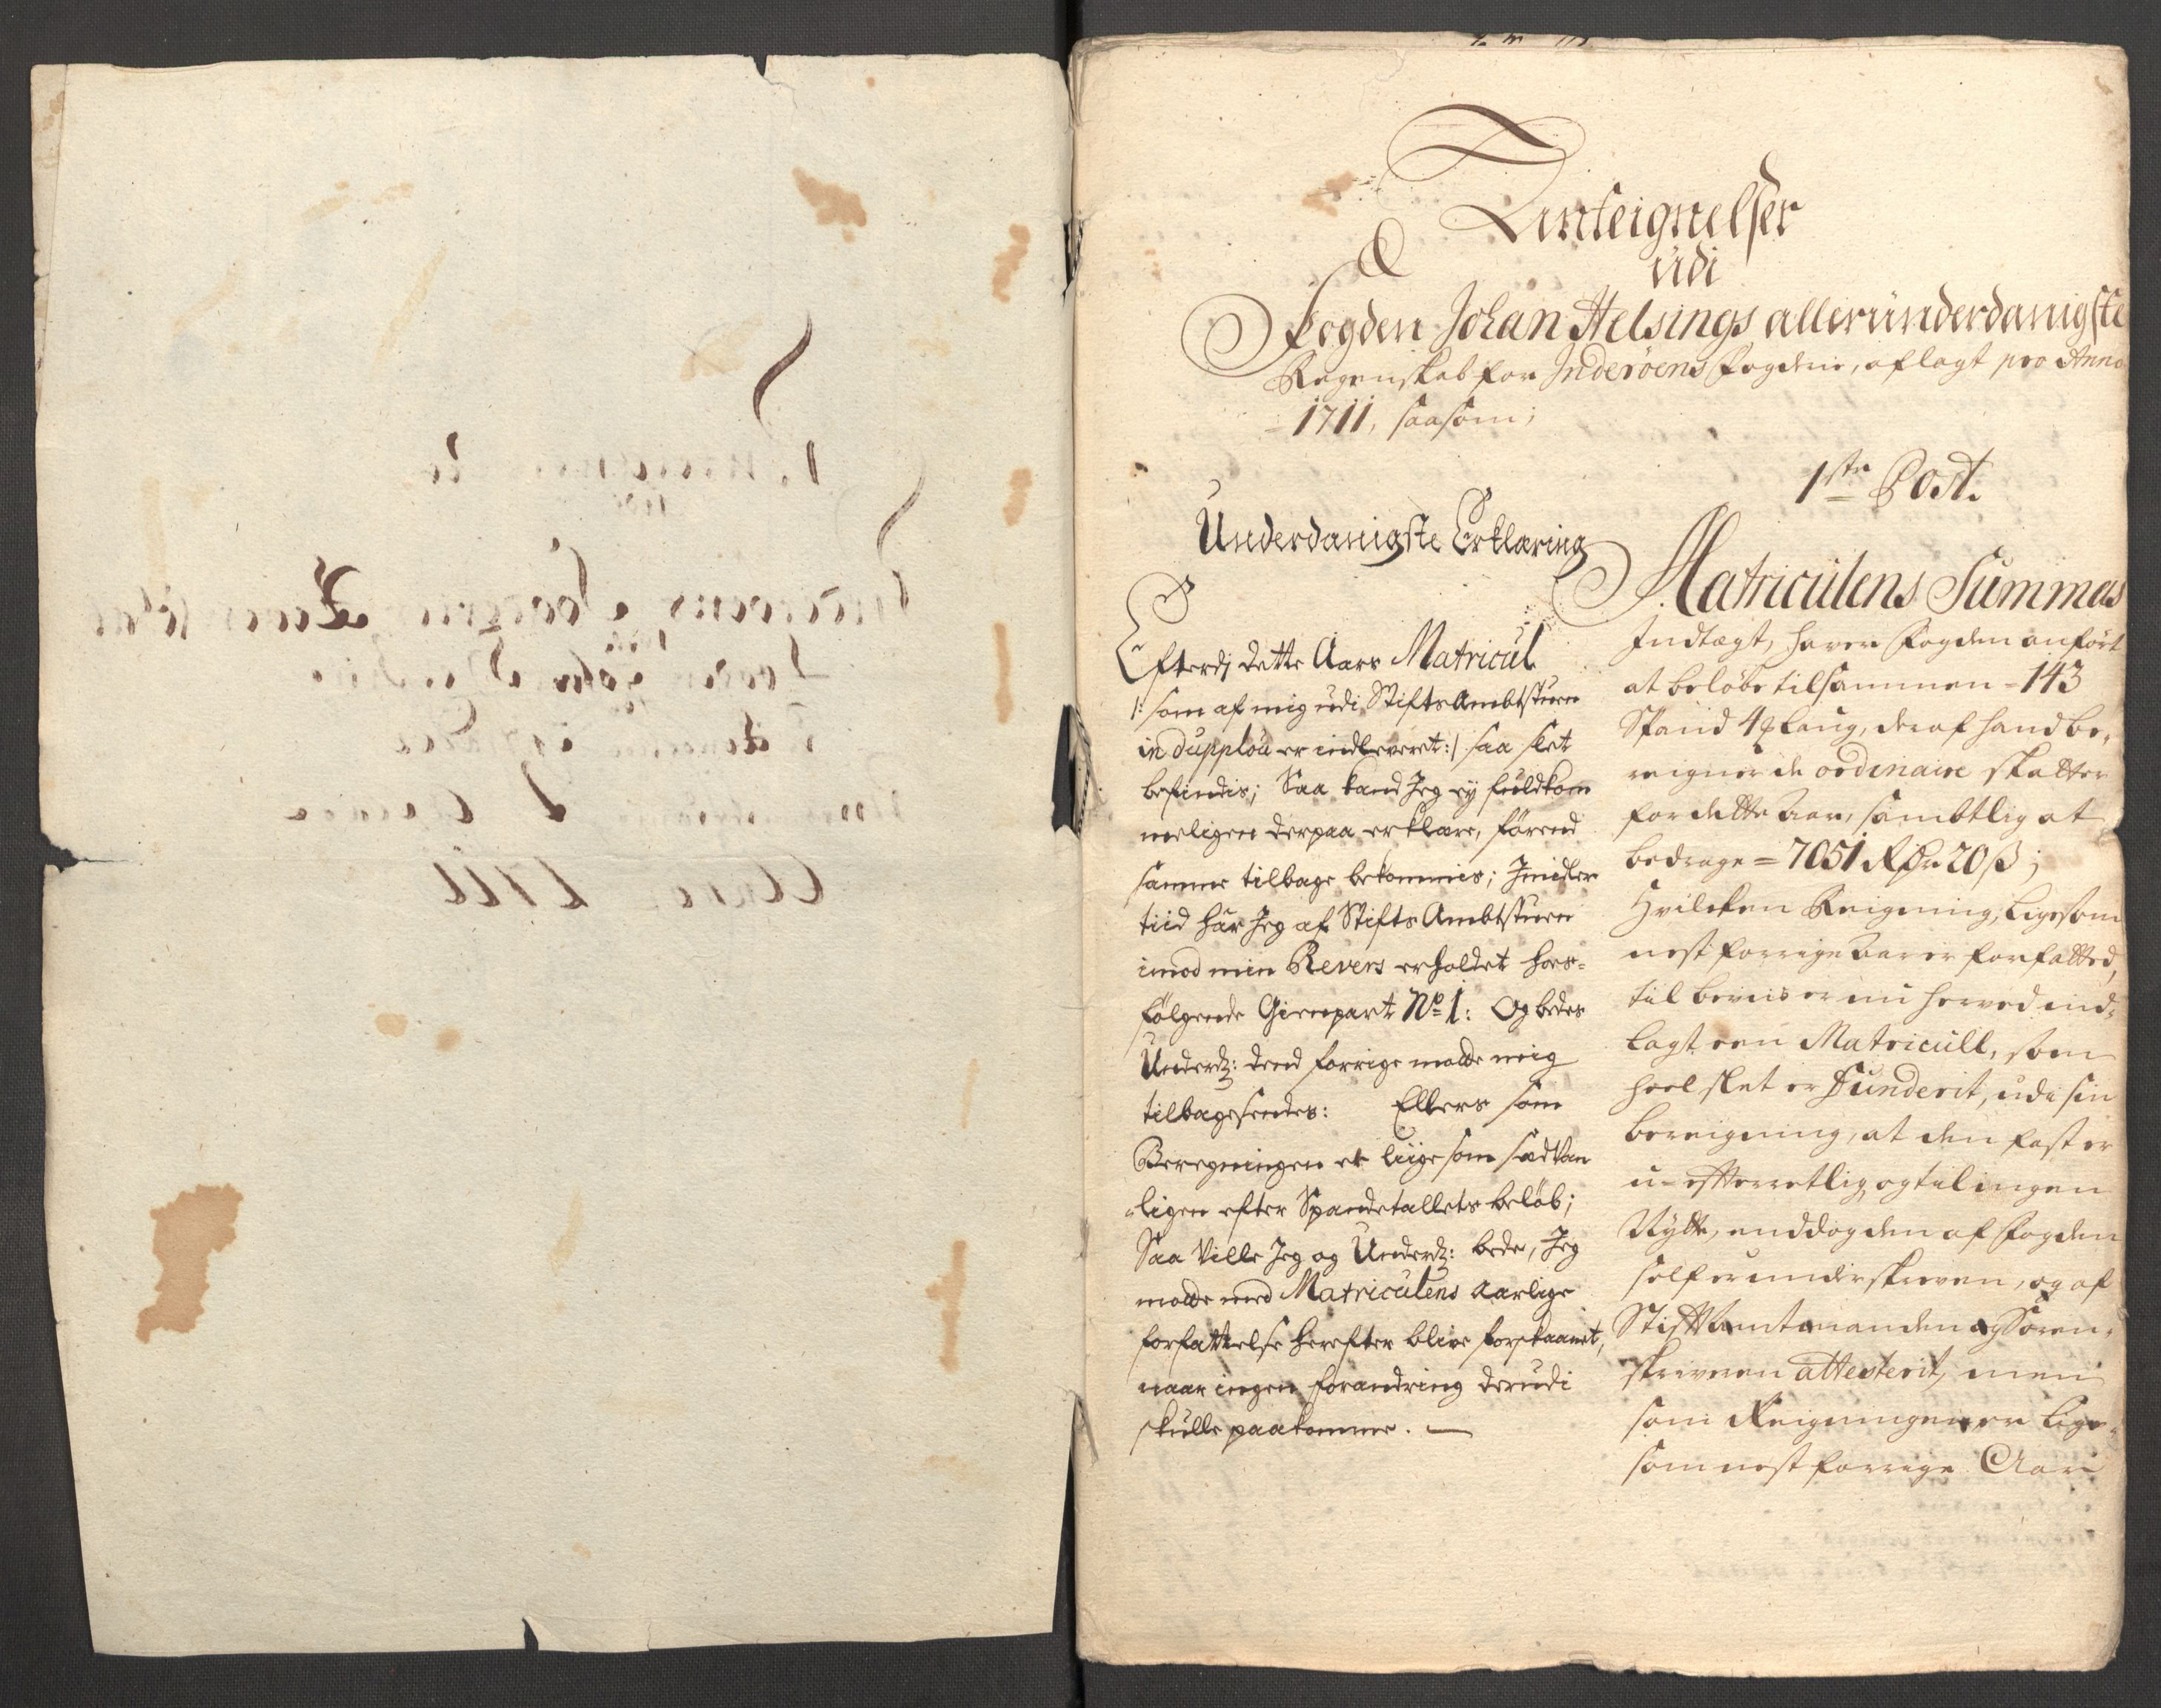 Anteignelser
udi
Fogden Johan Helsings allerunderdanigste
Regenskab for Inderöens Fogderie, aflagt pro Anno
1711, saasom;
Underdanigste Erklæring
Efterdj dette Aars Matricul
/: som af mig udi StiftsAmbtstuen
in dupplou er indleveret :/ saa slet
befindis; Saa kand Jeg ey fuldkom
meligen derpaa erklære, förend
samme tilbage bekommis; Imidler
tiid har Jeg af StiftsAmbtstuen
imod min Revers erholdet hos-
fölgende Gienpart No 1: Og bedes
Underd: dend forrige motte mig
tilbagesendes: Ellers som
Beregningen er liigesom sædvan
ligen efter Spandetallets belöb;
Saa Ville Jeg og Underd: bede, Jeg
motte med Matriculens Aarlige
forfattelse herefter blive forskaanet,
naar ingen forandring derudi
skulle paakomme. —
1ste Post.
Matriculens Summas
Indtægt, haver Fogden anfört
at belöbe tilsammen = 143
Spand 4 laug, deraf hand be-
reigner de ordinaire skatter
for dette Aar, sambtlig at
bedrage = 7051 Rdr 20 s;
Hvilcken Reigning, ligesom
nest forrige Aar er forfatted,
til beviis er nu herved ind-
lagt een Matricull, som
heel slet er funderit, udi sin
bereigning, at den fast er
u-efterretlig og til ingen
Nytte, enddog den af Fogden
self er underskreven, og af
Stiftamtmanden og Soren-
skriveren attesterit, men
som Reigningen er lige-
som nest forrige Aar